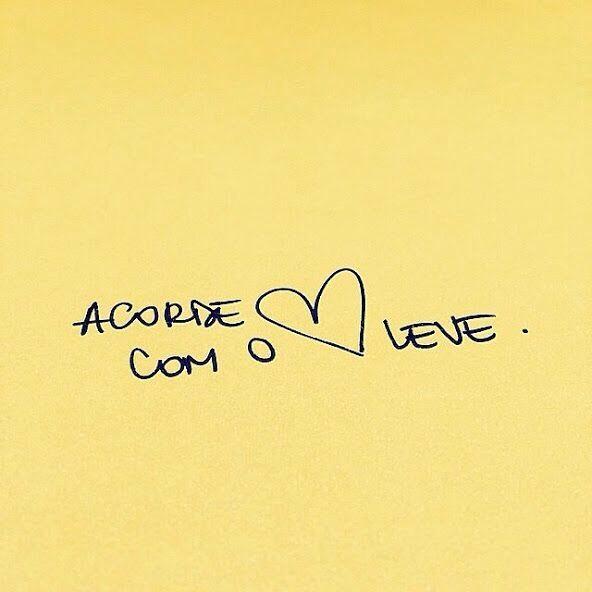 ACORDE
COM O ♡ LEVE.